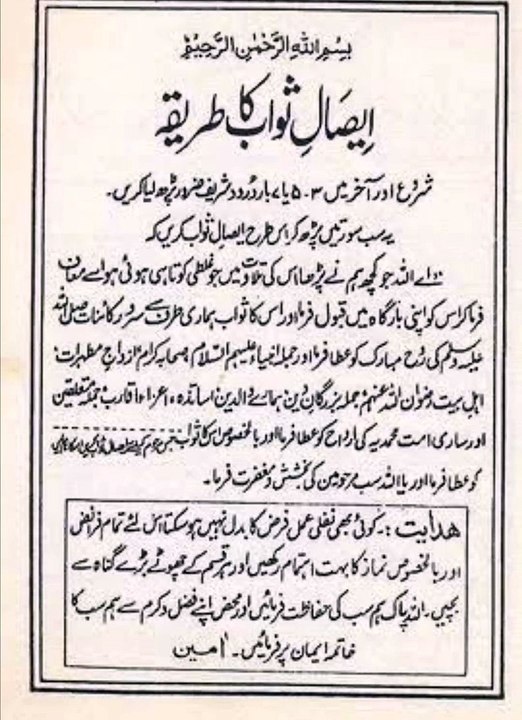 بِسْمِ اللهِ الرَّحْمٰنِ الرَّحِيْمِ
ایصالِ ثواب کا طریقہ
شروع اور آخر میں ۳-۵ یا ۷ بار درود شریف ضرور پڑھ لیا کریں۔
یہ سب سورتیں پڑھ کر اس طرح ایصالِ ثواب کریں کہ
:: اے اللہ جو کچھ ہم نے پڑھا اس کی تلاوت میں جو غلطی کوتاہی ہوئی ہو اسے معاف
فرما کر اس کو اپنی بارگاہ میں قبول فرما اور اس کا ثواب ہماری طرف سے سرورِ کائنات صلی اللہ
علیہ وسلم کی روح مبارک کو عطا فرما اور جملہ انبیاء علیہم السلام، صحابہ کرام، ازواج مطہرات،
اہل بیت رضوان اللہ عنہم، جملہ بزرگانِ دین ہمارے والدین اساتذہ، اعزاء اقارب جملہ متعلقین
اور ساری امت محمدیہ کی ارواح کو عطا فرما اور بالخصوص اس کا ثواب
کو عطا فرما اور یا اللہ سب مرحومین کی بخشش و مغفرت فرما۔
ھدایت :۔ کوئی بھی نفلی عمل فرض کا بدل نہیں ہو سکتا اس لئے تمام فرائض
اور بالخصوص نماز کا بہت اہتمام رکھیں اور ہر قسم کے چھوٹے بڑے گناہ سے
بچیں۔ اللہ پاک ہم سب کی حفاظت فرمائیں اور محض اپنے فضل و کرم سے ہم سب کا
خاتمہ ایمان پر فرمائیں۔ اٰمین